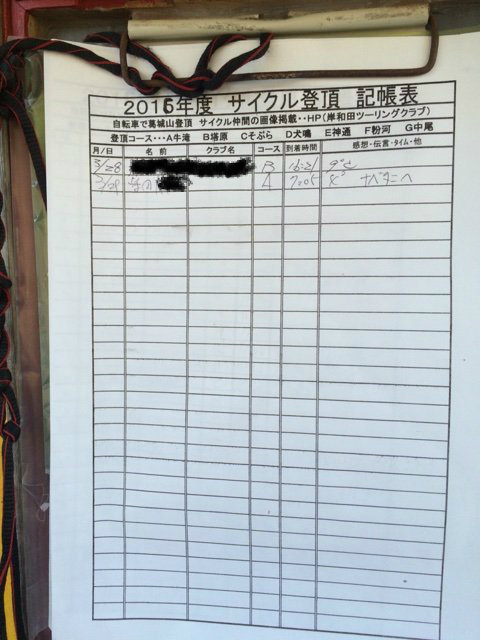 2016年度 サイクル登頂 記帳表
自転車で葛城山登頂 サイクル仲間の画像掲載・・HP(岸和田ツーリングクラブ)
登頂コース・・・A牛滝 B塔原 Cそぶら D犬鳴 E神通 F粉河 G中尾
月/日 名 前 クラブ名 コース 到着時間 感想・伝言・タイム・他
3/28 B
A